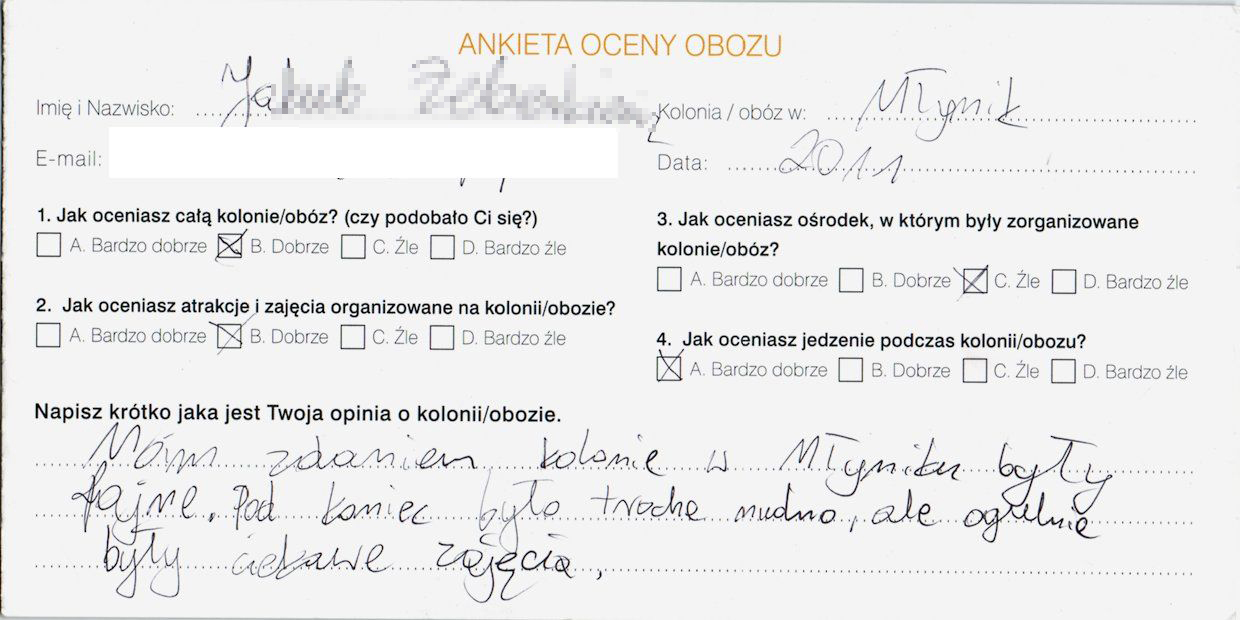 ANKIETA OCENY OBOZU
Imię i Nazwisko: Jakub
Kolonia / obóz w: Młynik
E-mail:
Data: 2011
1. Jak oceniasz całą kolonie/obóz? (czy podobało Ci się?)
A. Bardzo dobrze B. Dobrze C. Źle D. Bardzo źle
2. Jak oceniasz atrakcje i zajęcia organizowane na kolonii/obozie?
A. Bardzo dobrze B. Dobrze C. Źle D. Bardzo źle
3. Jak oceniasz ośrodek, w którym były zorganizowane
kolonie/obóz?
A. Bardzo dobrze B. Dobrze C. Źle D. Bardzo źle
4. Jak oceniasz jedzenie podczas kolonii/obozu?
A. Bardzo dobrze B. Dobrze C. Źle D. Bardzo źle
Napisz krótko jaka jest Twoja opinia o kolonii/obozie.
Moim zdaniem kolonie w Młyniku były
fajne. Pod koniec było troche nudno, ale ogulnie
były ciekawe zajęcia,